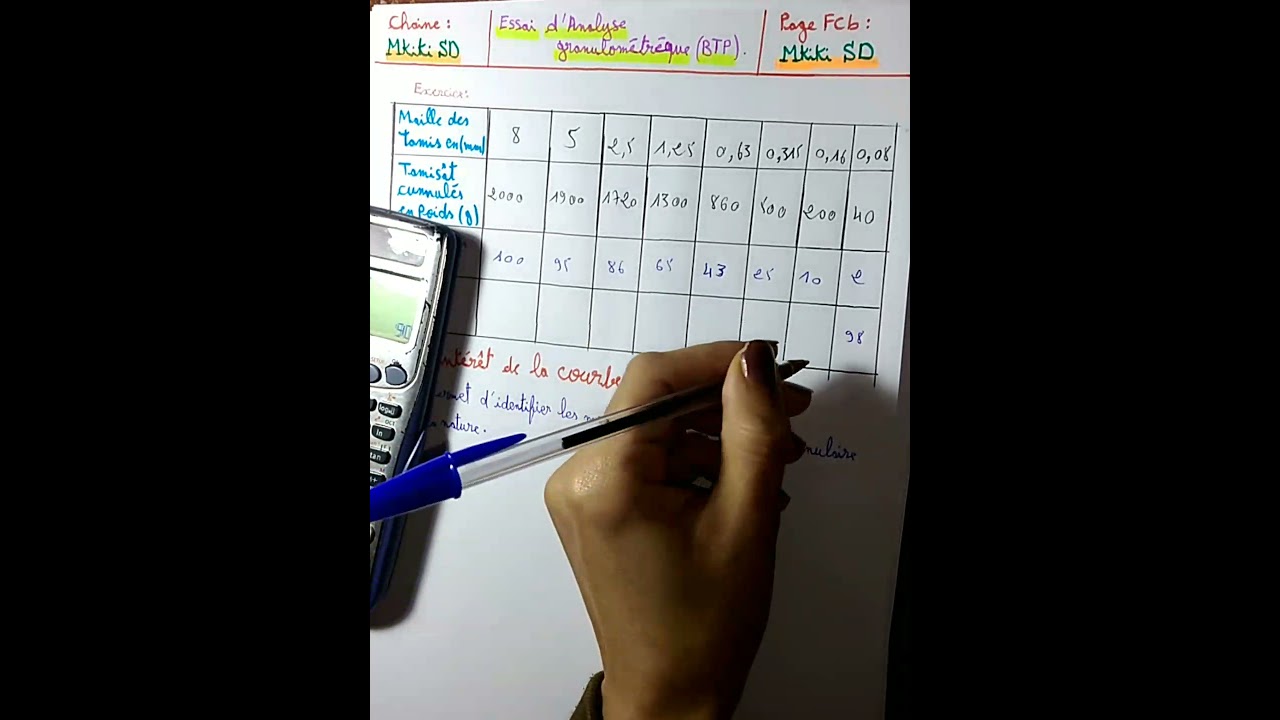 Chaine :
Mkiki SD
Essai d'Analyse
granulométréque (BTP).
Page FCb :
Mkiki SD
Exercice:
Maille des
tamis en(mm)
8 5 2,5 1,25 0,63 0,315 0,16 0,08
Tamisât
cumulés
en Poids (g)
2000 1900 1720 1300 860 500 200 40
100 95 86 65 43 25 10 2
98
90
intérêt de la courbe
d'identifier les
nature.